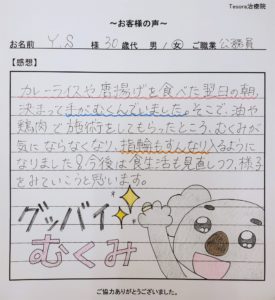 Tesora治療院
～お客様の声～
お名前 Y.S 様 30 歳代 男・女 ご職業 公務員
【感想】
カレーライスや唐揚げを食べた翌日の朝、
決まって手がむくんでいました。そこで、油や
鶏肉で施術をしてもらったところ、むくみが
気にならなくなり、指輪もすんなり入るように
なりました!!今後は食生活も見直しつつ、様子
をみていこうと思います。
グッバイ
むくみ
ご協力ありがとうございました。